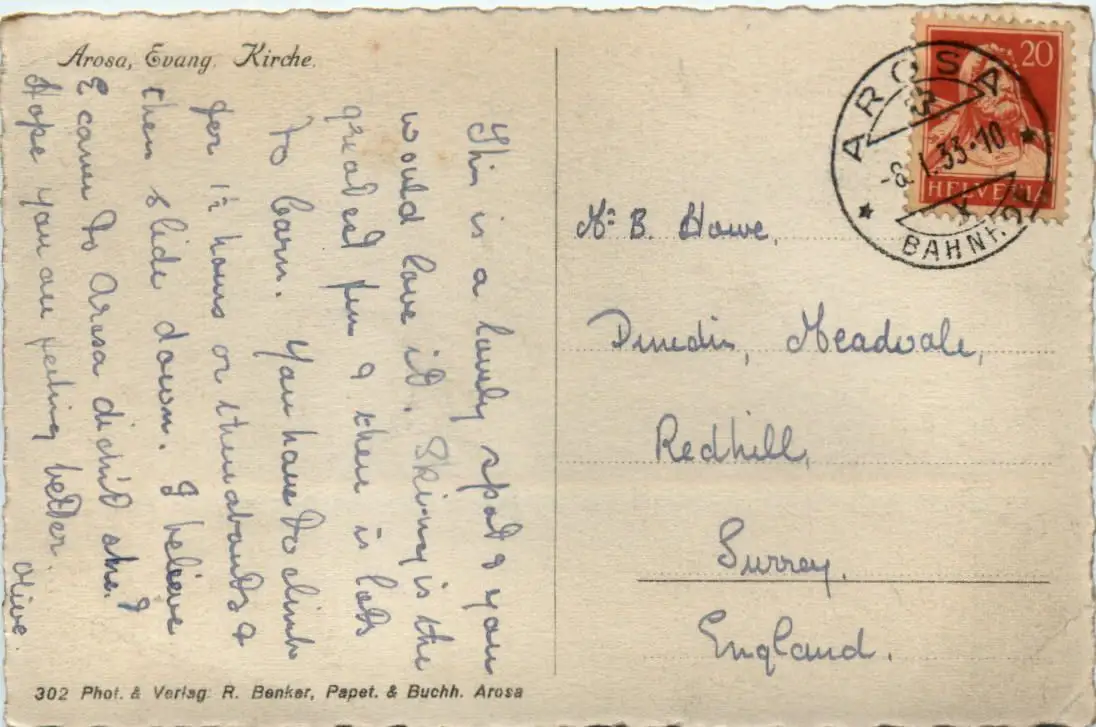 Arosa, Evang. Kirche.
This is a lovely spot & you
would love it. Skiing is the
greatest fun & there is lots
to learn. You have to climb
for 1½ hours or thereabouts &
then slide down. I believe
E came to Arosa didn't she?
Hope you are feeling better.
Olive.
302 Phot. & Verlag: R. Benker, Papet. & Buchh. Arosa
20
HELVETIA
AROSA
-8.I.33-10
BAHNHOF
Mr B. Howe,
Dunedin, Meadvale,
Redhill,
Surrey.
England.